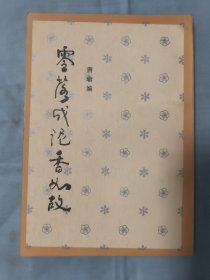 零落成泥香如故
萧瑜编